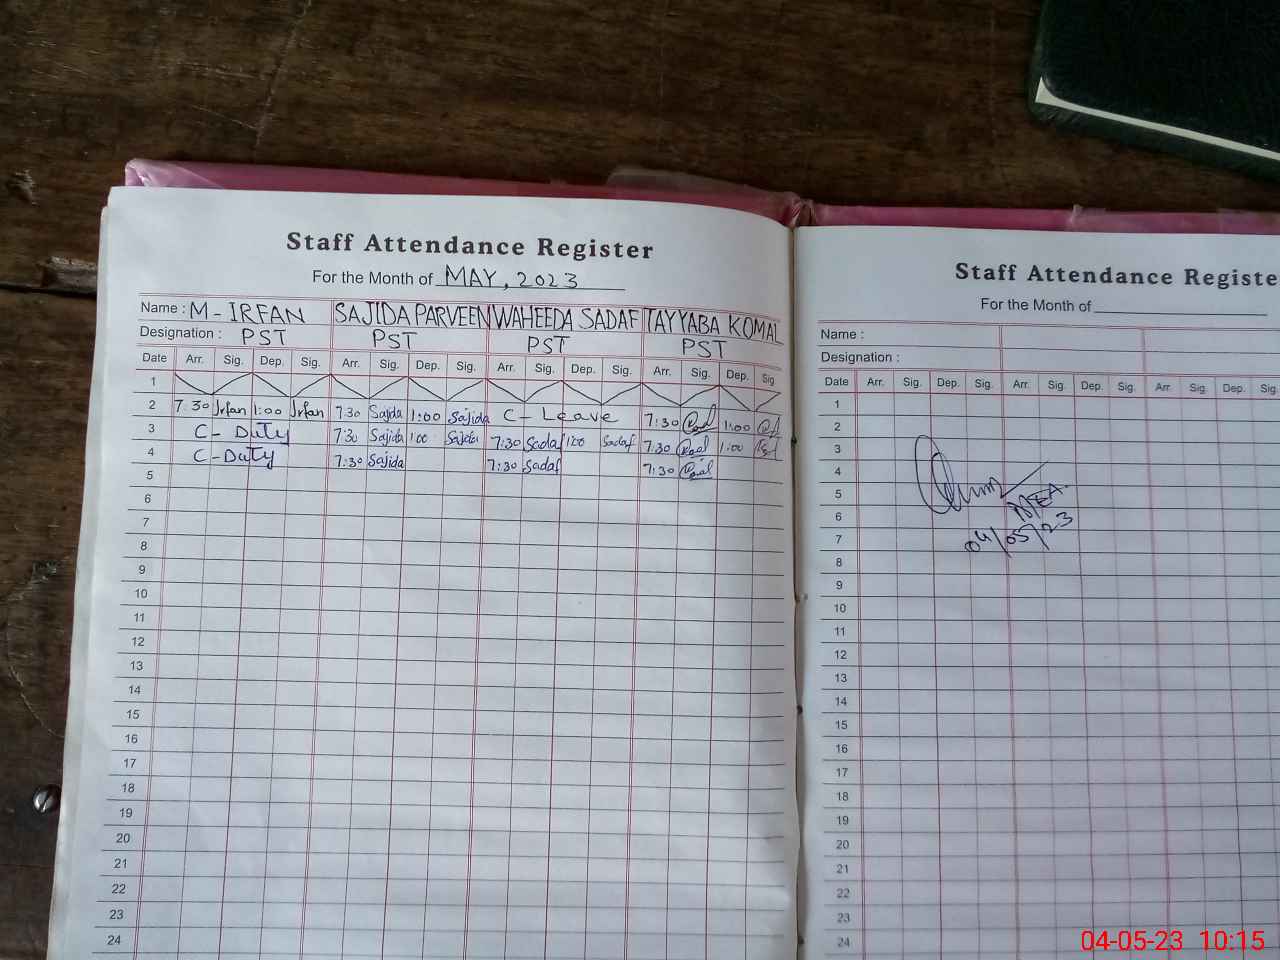 Staff Attendance Register
For the Month of MAY, 2023
Name : M - IRFAN SAJIDA PARVEEN WAHEEDA SADAF TAYYABA KOMAL
Designation : PST PST PST PST
Date Arr. Sig. Dep. Sig. Arr. Sig. Dep. Sig. Arr. Sig. Dep. Sig. Arr. Sig. Dep. Sig.
1
2 7:30 Irfan 1:00 Irfan 7:30 Sajida 1:00 Sajida C - Leave 7:30 1:00
3 C - Duty 7:30 Sajida 1:00 Sajida 7:30 Sadaf 1:00 Sadaf 7:30 1:00
4 C - Duty 7:30 Sajida 7:30 Sadaf 7:30
5
6
7
8
9
10
11
12
13
14
15
16
17
18
19
20
21
22
23
24
Staff Attendance Registe
For the Month of
Name :
Designation :
Date Arr. Sig. Dep. Sig. Arr. Sig. Dep. Sig. Arr. Sig. Dep. Sig.
1
2
3
4
5
6
7
8
9
10
11
12
13
14
15
16
17
18
19
20
21
22
23
24
MEA.
04/05/23
04-05-23 10:15